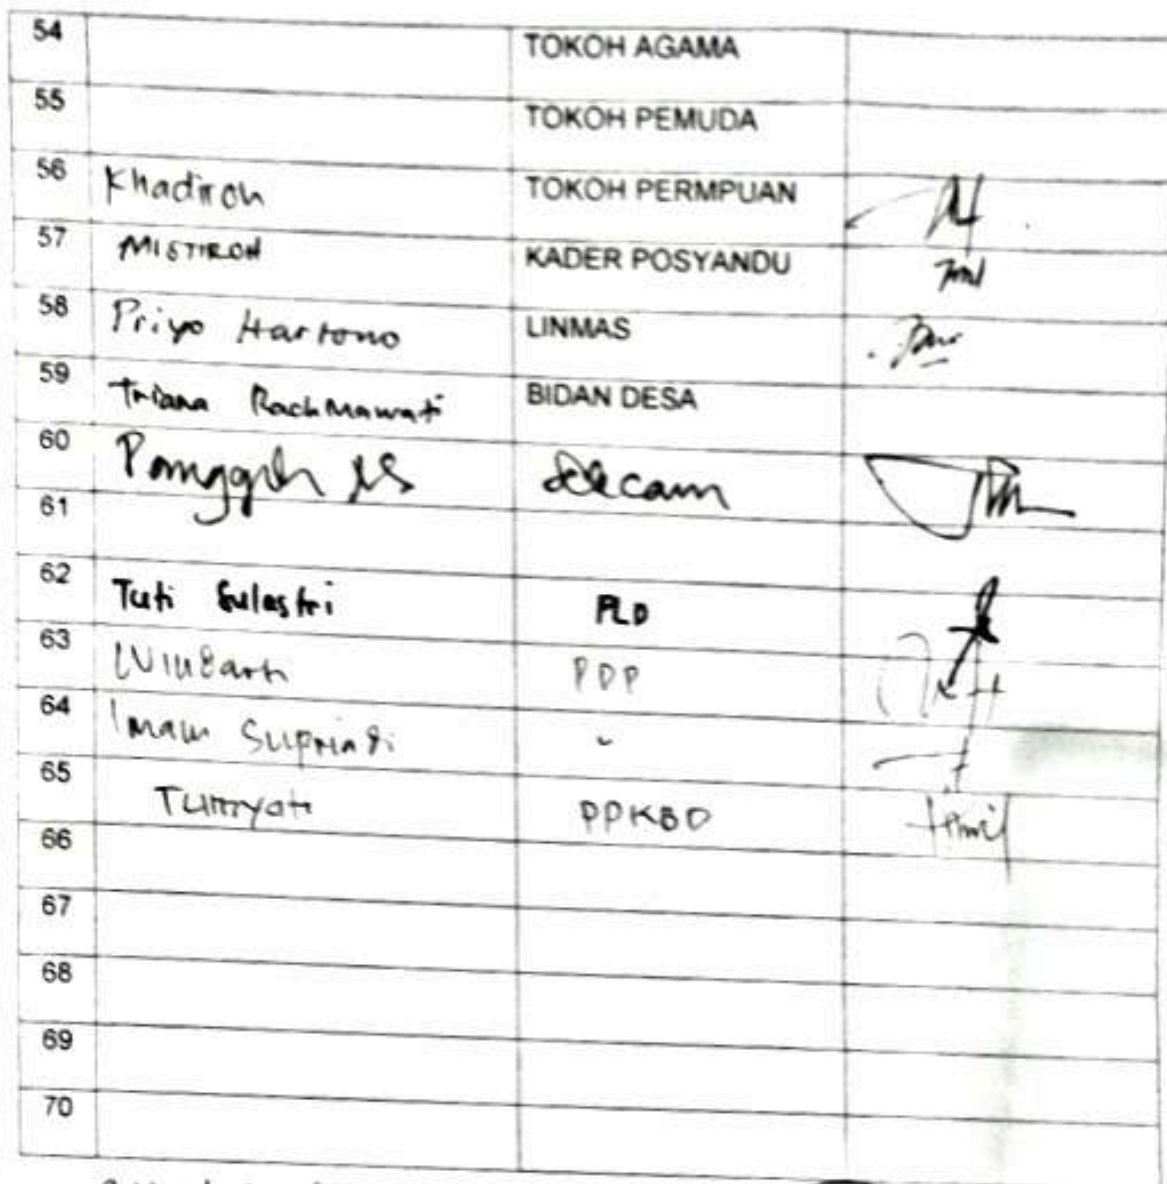 54 TOKOH AGAMA
55 TOKOH PEMUDA
56 Khadiroh TOKOH PERMPUAN
57 MISTIROH KADER POSYANDU
58 Priyo Hartono LINMAS
59 Triana Rachmawati BIDAN DESA
60 Panggih
61
62 Tuti Sulastri PLD
63 PDP
64 Imam Supriadi
65 PPKBD
66
67
68
69
70